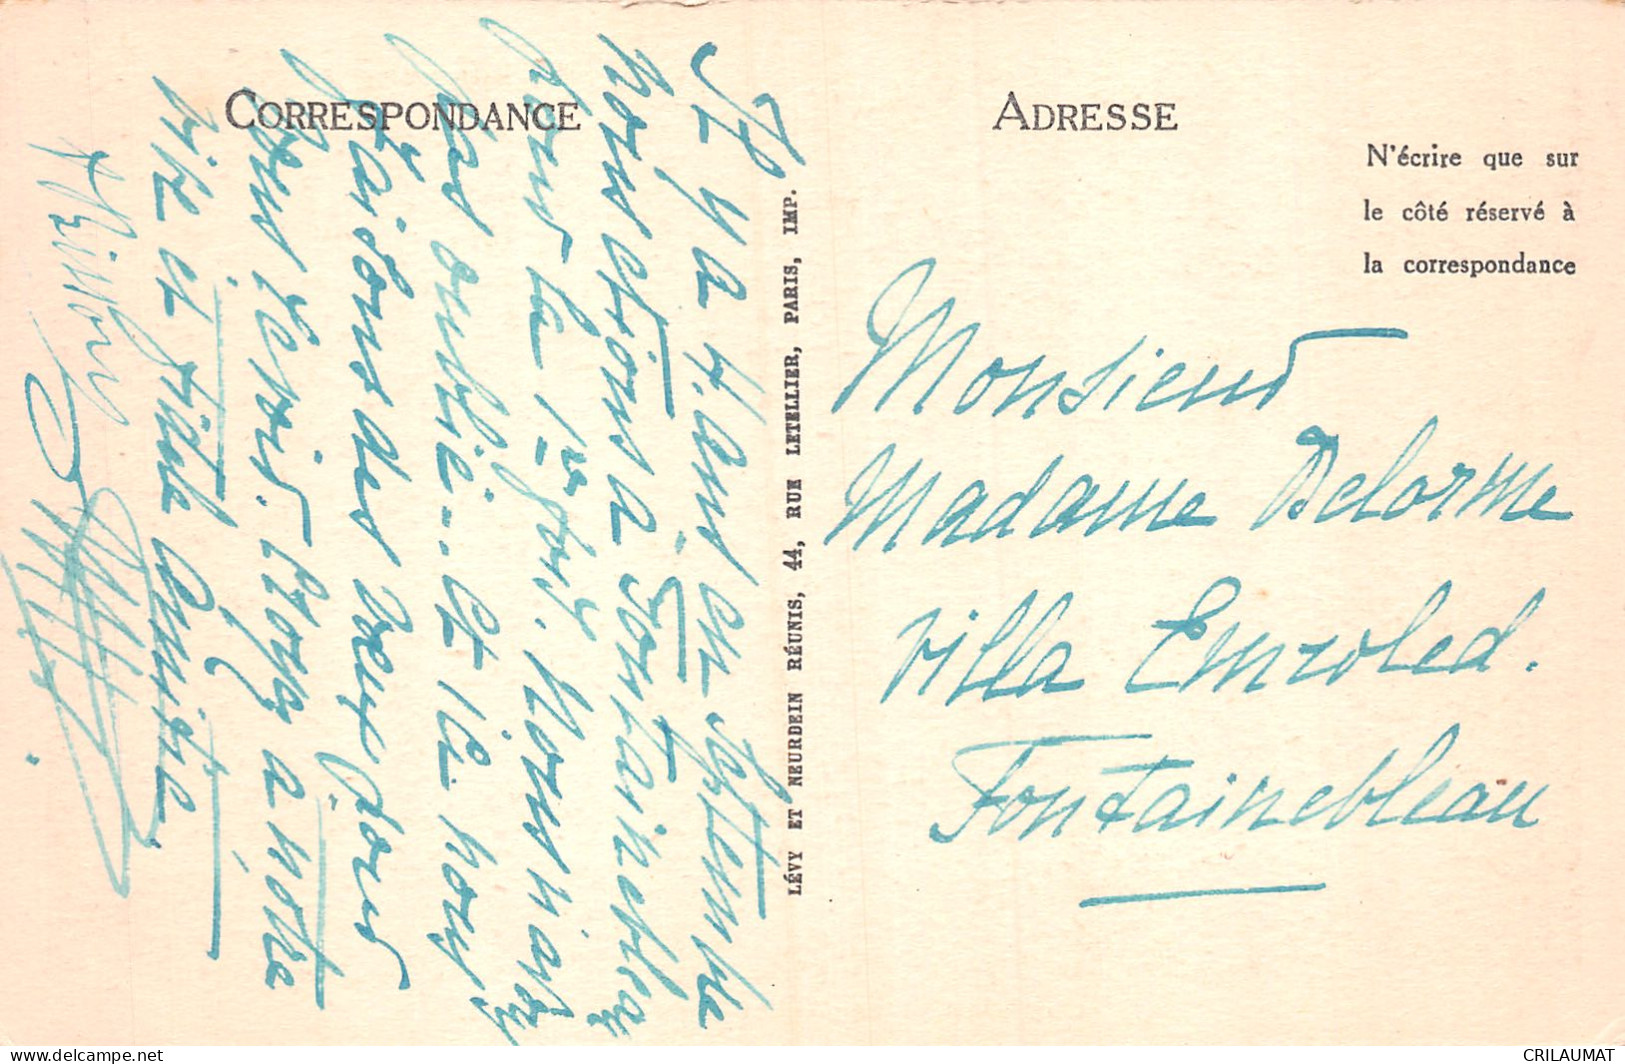 CORRESPONDANCE
Il y a 4 ans en Septembre
nous étions à Fontainebleau
pour la 1re fois. Nous n'avons
pas oublié... et ici nous
faisons des vœux pour
vous revoir. Croyez à notre
vive et fidèle amitié.
LÉVY ET NEURDEIN RÉUNIS, 44, RUE LETELLIER, PARIS, IMP.
ADRESSE
N'écrire que sur
le côté réservé à
la correspondance
Monsieur
Madame Delorme
Villa Emroled.
Fontainebleau
delcampe.net
CRILAUMAT